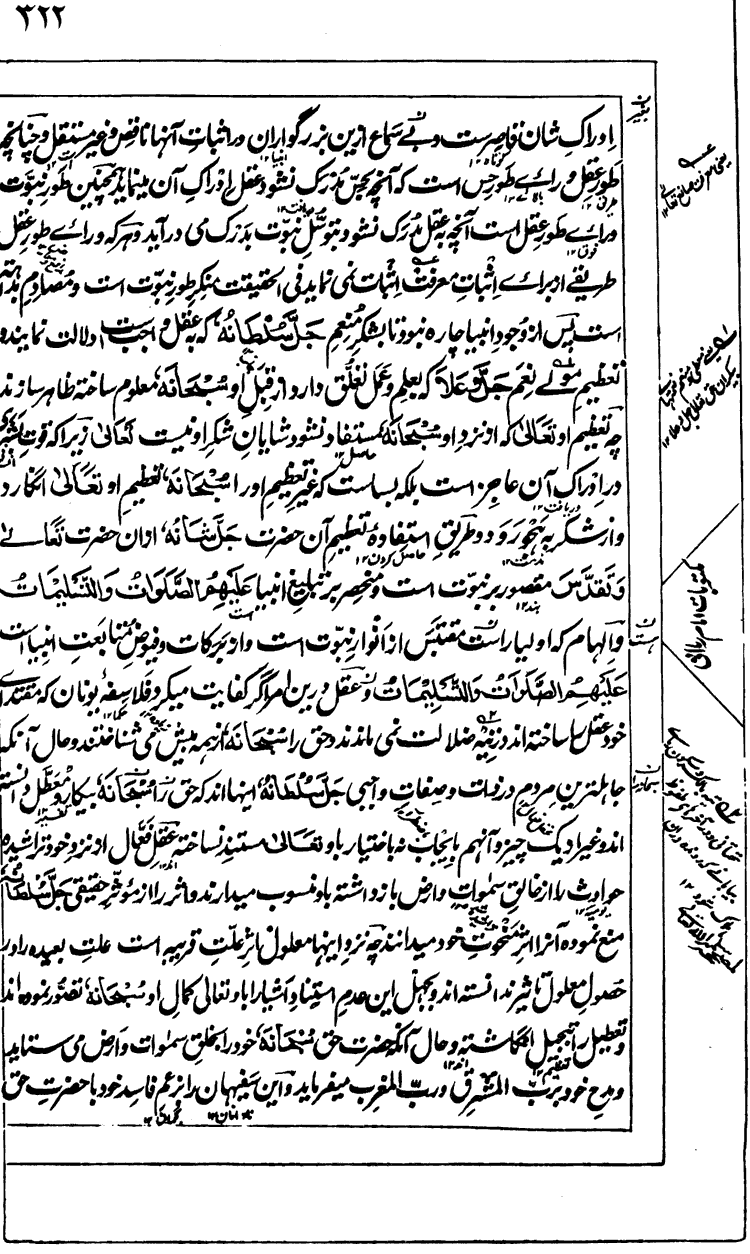 ۳۲۲
ادراکِ شان قاصرست و بے سَماع ازین بزرگواران در اثباتِ آنها ناقص و غیر مستقل و چنانچه
طَورِ عقل ورائے طَورِ حِس است که آنچه بحِس مُدرَک نشود عقل اِدراکِ آن مینماید همچنین طَورِ نبوّت
ورائے طَورِ عقل است آنچه به عقل مُدرَک نشود بتوسّلِ نبوّت بدَرَک می درآید و هرکه ورائے طَورِ عقل
طریقے از برائے اِثباتِ معرفت اِثبات نمی نماید فی الحقیقت مُنکرِ طورِ نبوّت است و مُصادِمِ بداهت
است پس از وجودِ انبیا چاره نبود تا بشکرِ مُنعِم جَلَّ سُلْطَانُهٗ که به عقل واجب است دلالت نمایند و
تعظیمِ مَولٰے نِعَم جَلَّ وَعَلَا که بعِلم و عَمَل تعلّق دارد از قِبَلِ او سُبْحَانَهٗ معلوم ساخته ظاهر سازند
چه تعظیمِ او تَعَالیٰ که از نزدِ او سُبْحَانَهٗ مستفاد نشود شایانِ شکرِ او نیست تَعَالیٰ زیرا که قوتِ بشری
در اِدراکِ آن عاجز است بلکه بسا است که غیرِ تعظیمِ او را سُبْحَانَهٗ تعظیمِ او تَعَالیٰ انگارد
و از شکر به هَجْو رَود و طریقِ استفادۂ تعظیمِ آن حضرت جَلَّ شَانُهٗ ازان حضرت تَعَالٰے
وَتَقَدَّسَ مقصور بر نبوّت است و منحصر بر تبلیغِ انبیا عَلَيْهِمُ الصَّلَوَاتُ وَالتَّسْلِيمَاتُ
و اِلهام که اولیا راست مقتبَس از اَنوارِ نبوّت است و از برکات و فیوضِ مُتابَعتِ انبیاست
عَلَيْهِمُ الصَّلَوَاتُ وَالتَّسْلِيمَاتُ و عقل درین امر اگر کفایت میکرد فلاسفۂ یونان که مقتدائے
خود عقل را ساخته اند در تِیهِ ضلالت نمی ماندند و حق را سُبْحَانَهٗ از همه بیش می شناختند و حال آنکه
جاهل ترینِ مردم در ذات و صفاتِ واجبی جَلَّ سُلْطَانُهٗ اینها اند که حق را سُبْحَانَهٗ بیکار و معطّل دانسته
اند و غیر از یک چیز و آنهم بایجاب نه باختیار باو تعالیٰ مستند نساخته عقلِ فعّال از نزدِ خود تراشیده
حوادث را از خالقِ سمٰوات و ارض باز داشته باو منسوب میدارند و اثر را از مُؤثّرِ حقیقی جَلَّ سُلْطَانُهٗ
منع نموده آنرا اثرِ مَنحُوتِ خود میدانند چه نزدِ اینها معلول اثرِ علّتِ قریبه است علّتِ بعیده را در
حصولِ معلول تاثیر ندانسته اند و بجهل این عدمِ اِستنادِ اشیا را باو تعالیٰ کمالِ او سُبْحَانَهٗ تصوّر نموده اند
و تعطیل را تبجیل انگاشته و حال آنکه حضرت حق سُبْحَانَهٗ خود را بخلقِ سمٰوات و ارض می ستاید
و مدحِ خود بربّ المشرق و ربّ المغرب میفرماید و این سفیهان را بزعمِ فاسدِ خود با حضرتِ حق
مکتوبات امام ربانی